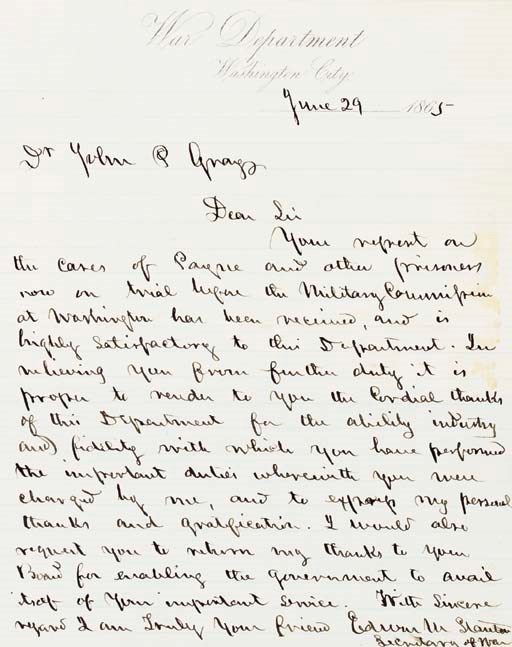 War Department
Washington City
June 29 1865
Dr John P Gray
Dear Sir
Your report on
the cases of Payne and other prisoners
now on trial before the Military Commission
at Washington has been received, and is
highly satisfactory to this Department. In
relieving you from further duty it is
proper to render to you the Cordial thanks
of this Department for the ability industry
and fidelity with which you have performed
the important duties wherewith you were
charged by me, and to express my personal
thanks and gratification. I would also
request you to return my thanks to your
Board for enabling the Government to avail
itself of your important service. With Sincere
regard I am Truly Your friend Edwin M Stanton
Secretary of War